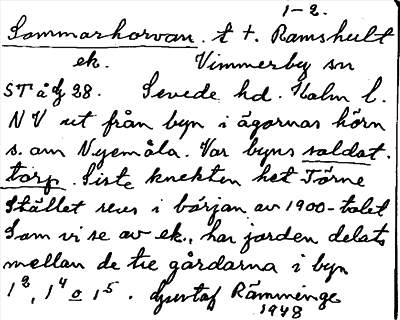 1-2.
Sommarhorvan. t t. Ramshult
ek. Vimmerby sn
ST å dg 28. Sevede hd. Kalm l.
NV ut från byn i ägornas hörn
s. om Nyemåla. Var byns soldat-
torp. Siste knekten het Törne
Stället revs i början av 1900-talet
Som vi se av ek., har jorden delats
mellan de tre gårdarna i byn
1², 1⁴ o 1⁵. Gustaf Rämminge
1948